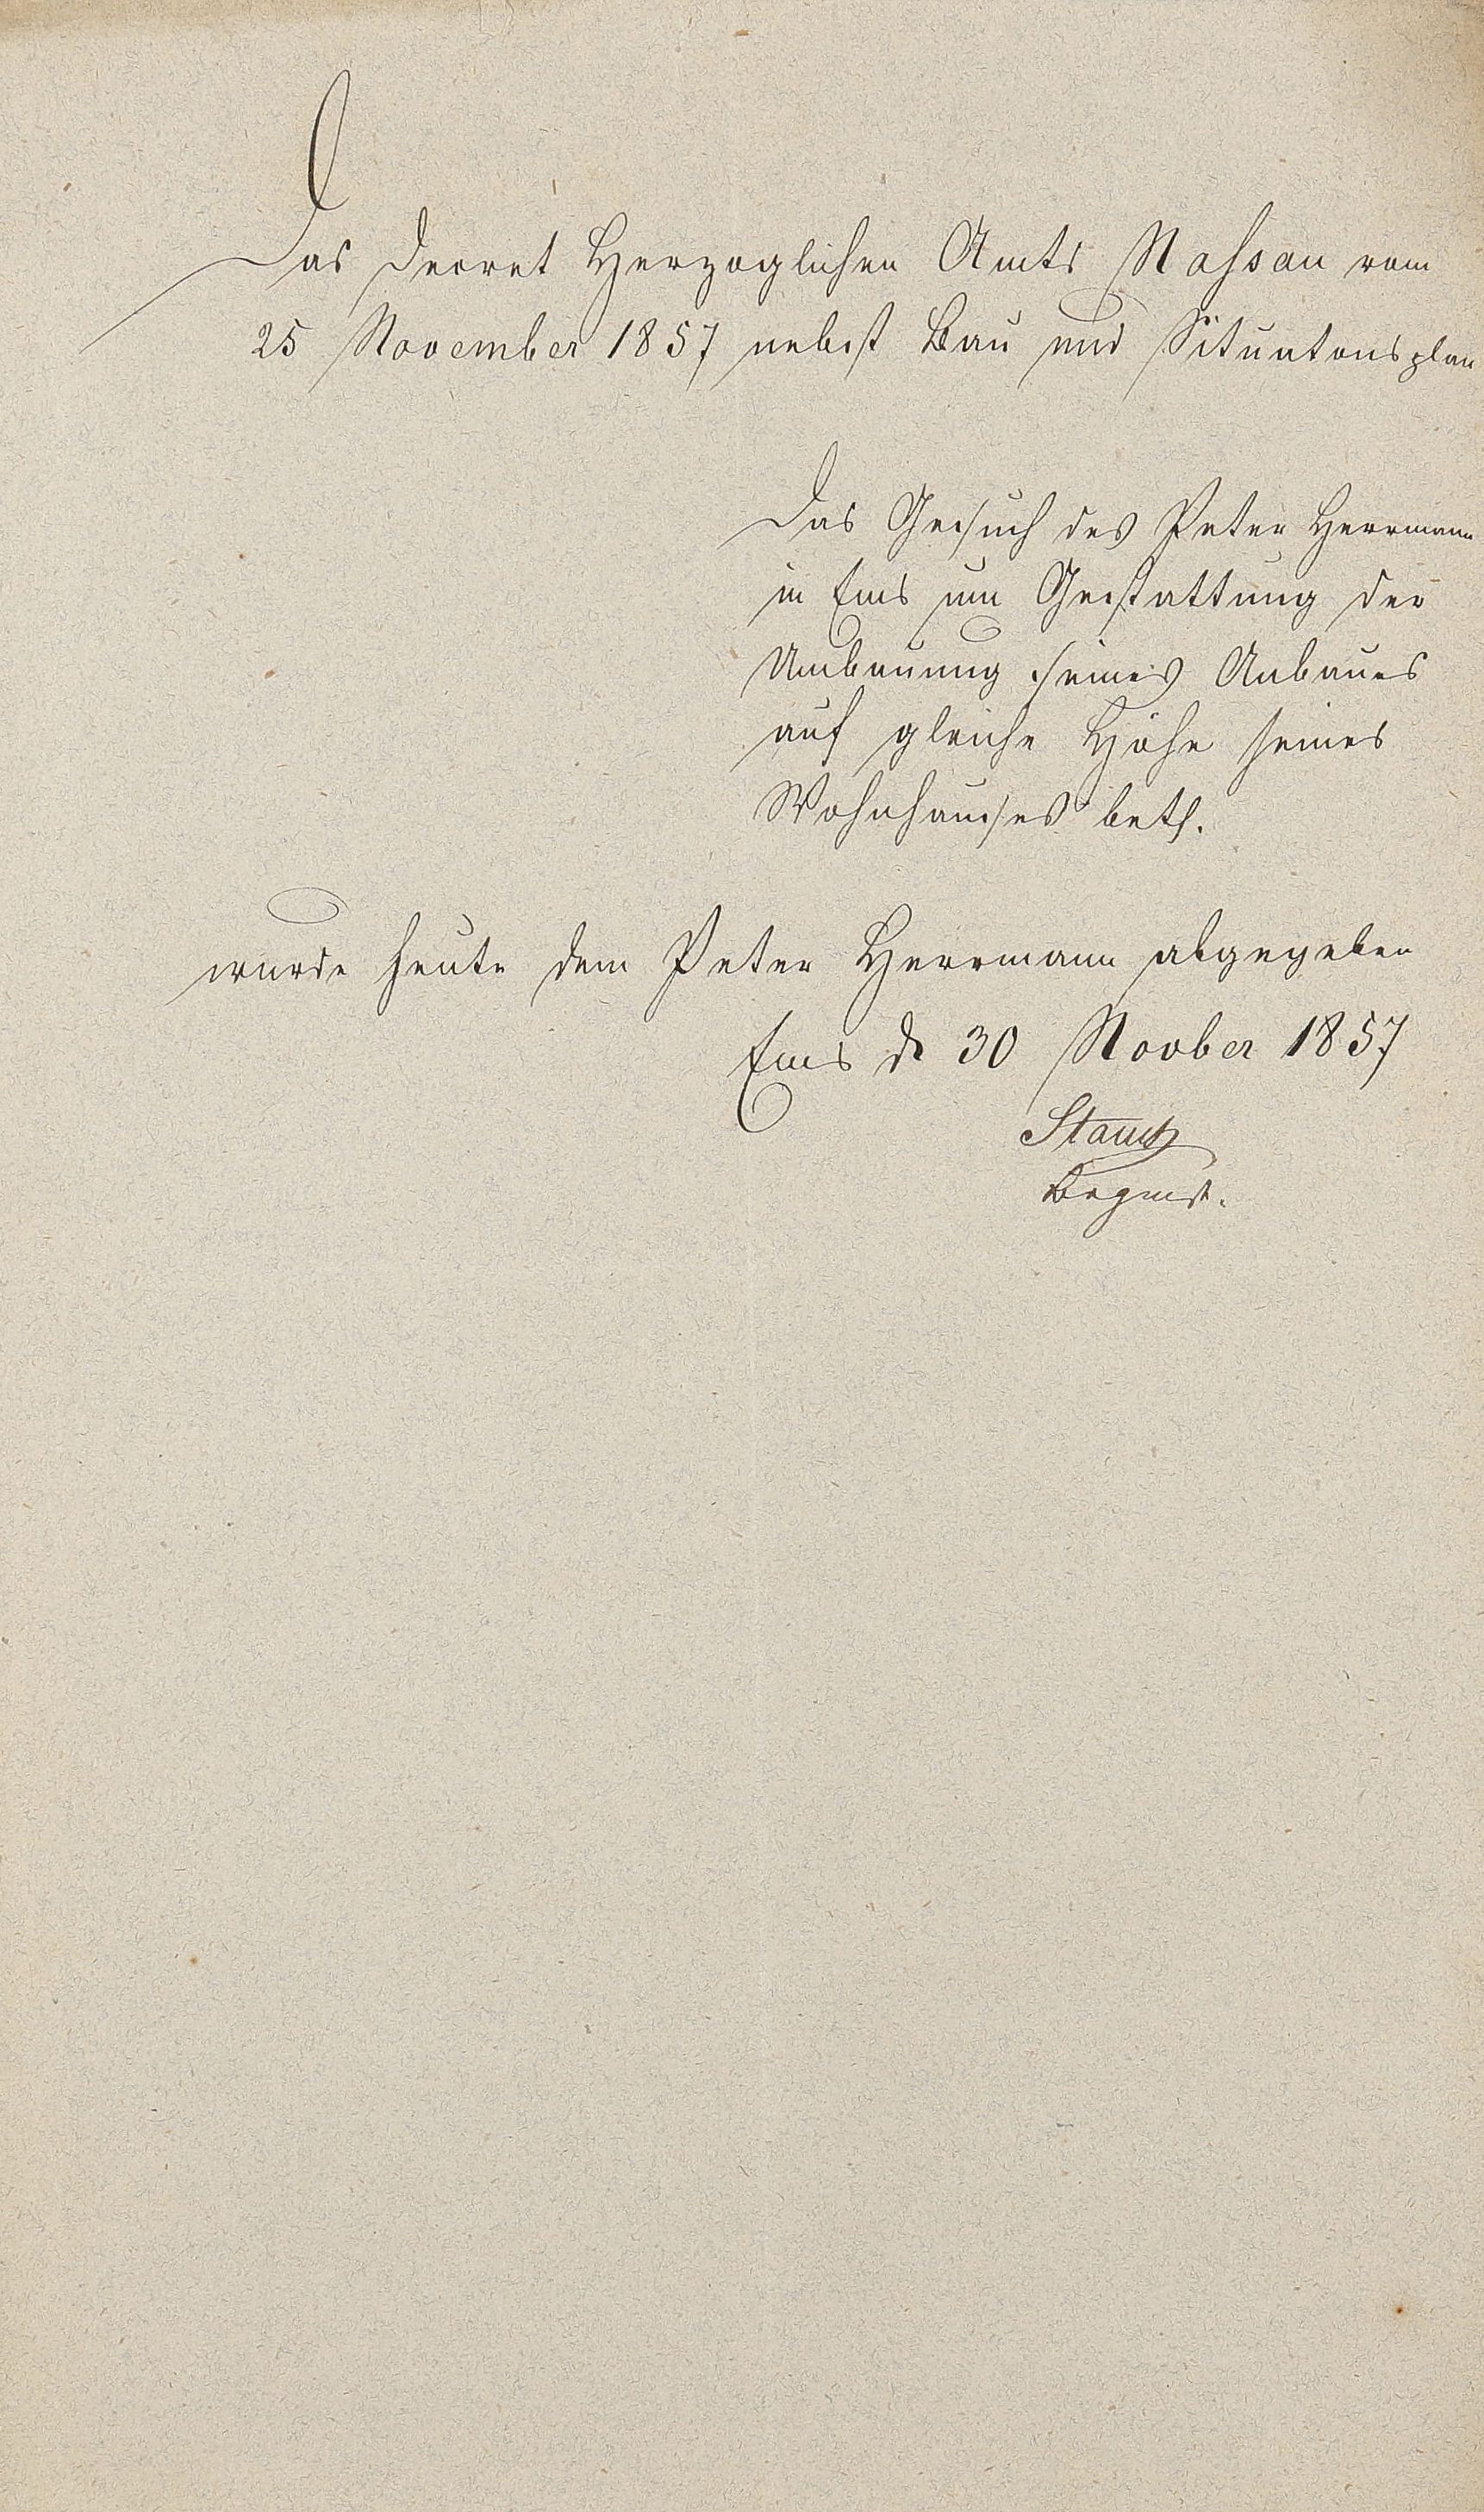 Das Decret Herzoglichen Amts Nassau vom
25 November 1857 nebst Bau und Situatonsplan
Das Gesuch des Peter Herrmann
in Ems um Gestattung der
Umbauung seines Anbaues
auf gleiche Höhe seines
Wohnhauses betf.
wurde heute dem Peter Herrmann abgegeben
Ems d 30 Novber 1857